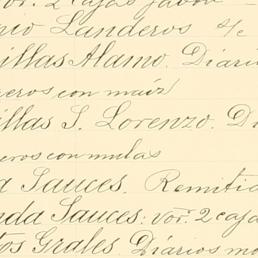 2 cajas jabon
Landeros
illas Alamo. Diari
eros con maiz
illas S. Lorenzo. D
eros con mulas
a Sauces. Remitid
nda Sauces: vor. 2 caja
tos Grales. Diarios m